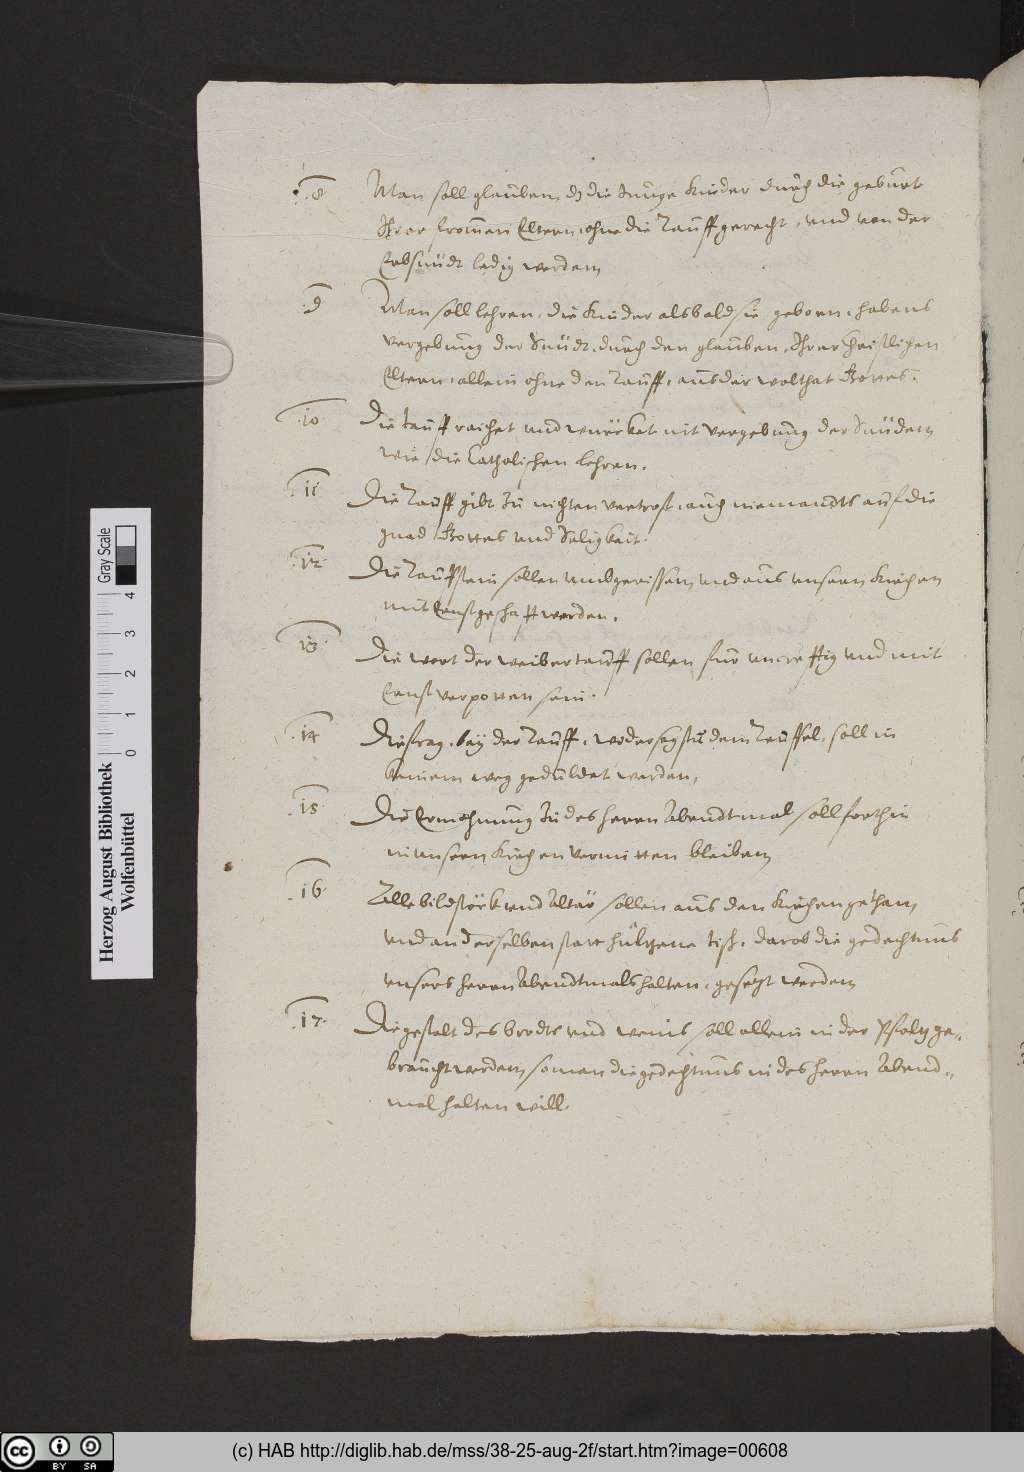 8
Man soll glauben, dz die Junge Kinder durch die geburt
Ihrer frommen Eltern, ohne die Tauff gerecht, und von der
Erbsündt ledig werden,
9
Man soll lehren, die Kinder alsbald sie geborn, habens
vergebung der Sündt, durch den glauben, Ihrer Christlichen
Eltern, allein ohne den Tauff, aus der wolthat Gottes.
10
Die tauff reichet und würcket nit vergebung der Sünden,
wie die Catholischen lehren.
11
Die Tauff gibt zu nichten vertrost, auch niemandts auf die
gnad Gottes und Seligkeit.
12
Die Tauffstein sollen umbgerissen, und aus unsern Kirchen
mit Ernst geschafft werden.
13
Die wort der weibertauff sollen für und mit
Ernst verpotten sein.
14
Die frag, bey der Tauff, widersagstu dem Teuffel, soll in
keinem weg geduldet werden,
15
Die Ermahnung zu des herrn Abendtmal soll forthin
in unsern Kirchen vermitten bleiben,
16
Alle bildstöck und Altär sollen aus den Kirchen gethan,
und an derselben statt hültzene tisch, darob die gedechtnus
unsers herrn Abendtmals halten, gesetzt werden,
17
Die gestalt des brodts und weins soll allein in der Pfaltz ge-
braucht werden, so man die gedechtnus in des herrn Abend-
mal halten will.
Herzog August Bibliothek
Wolfenbüttel
Gray Scale
0 1 2 3 4
CC BY SA
(c) HAB http://diglib.hab.de/mss/38-25-aug-2f/start.htm?image=00608